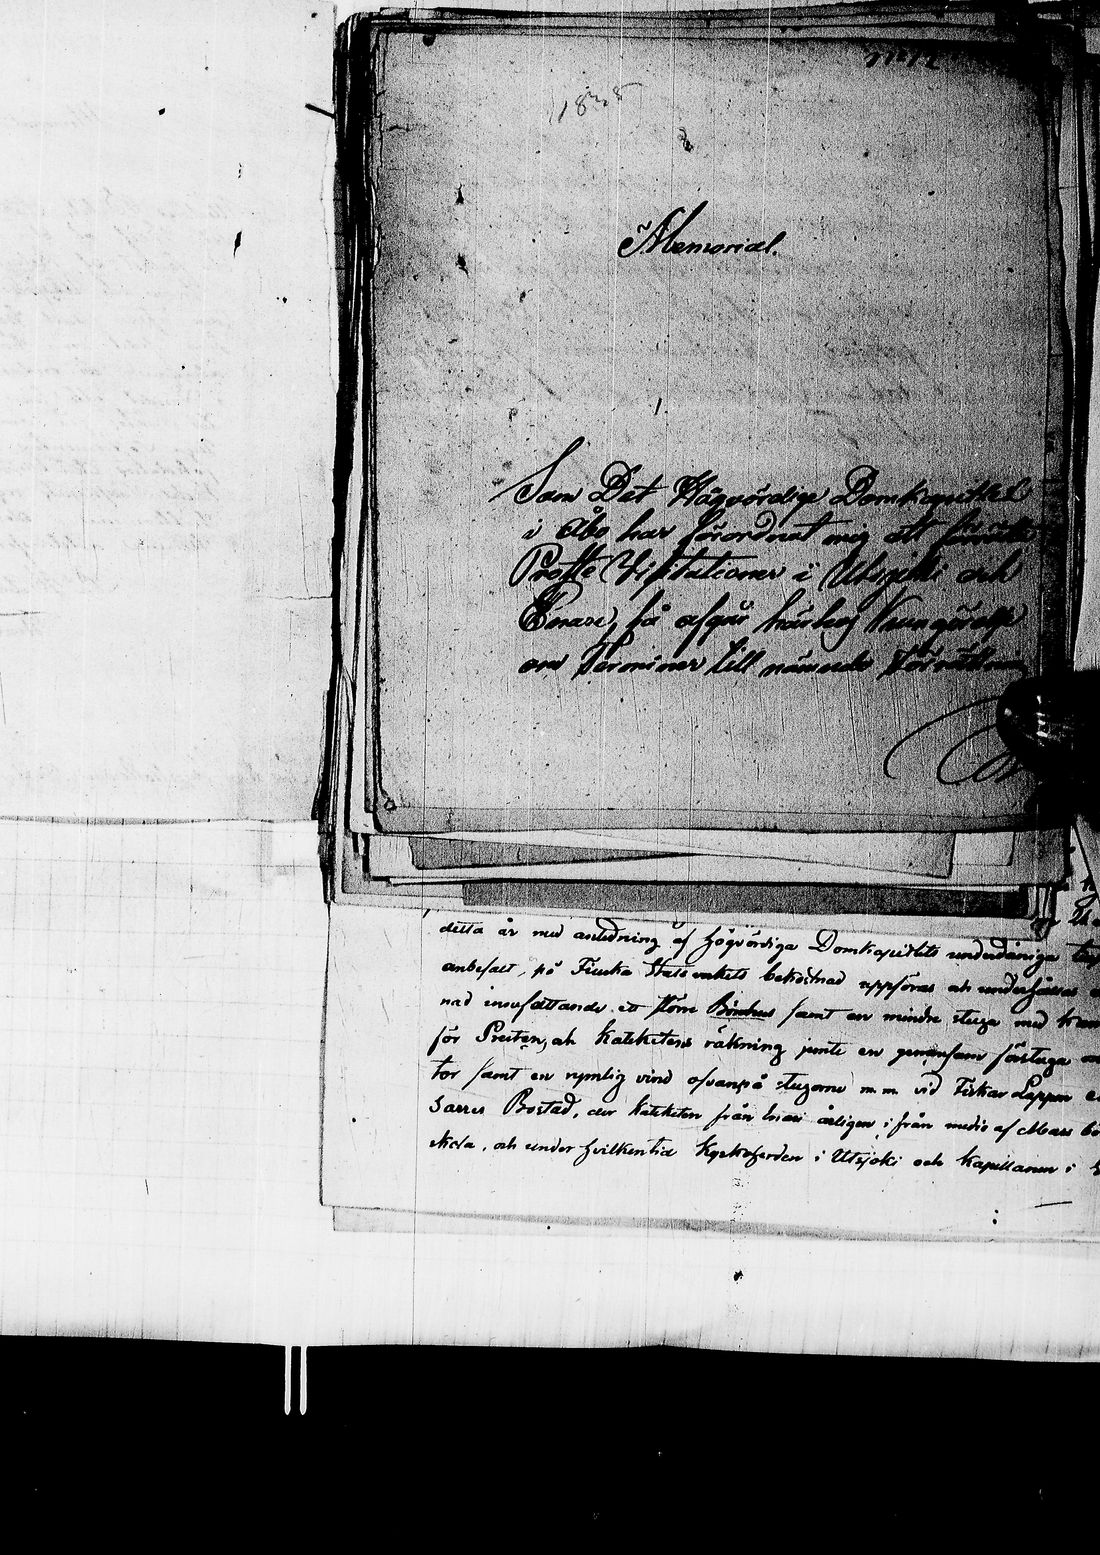 1835
Memorial.
Som Det Högvördige Domkapitlet
i Åbo har förordnat mig att förrätta
Prosts Visitationer i Utsjoki och
Enare, så afgår härhos Kungörelse
om Terminer till nämnde Förrättning
detta år med anledning af Högvördiga Domkapitlets underdåniga
anbefalt, på Finska Statsverkets bekostnad uppföras och underhållas
nad innefattande ett större Bönehus samt en mindre stuga med
för Presten, och Katekетens räkning jemte en gemensam förstuga
tor samt en rymlig vind ofvanpå stugorne m.m. vid Fiskar Lappen
Sarres Bostad, der Kateketen från Enari årligen ifrån medio af Mars
skola, och under hvilken tid Kyrkoherden i Utsjoki och Kapellanen i